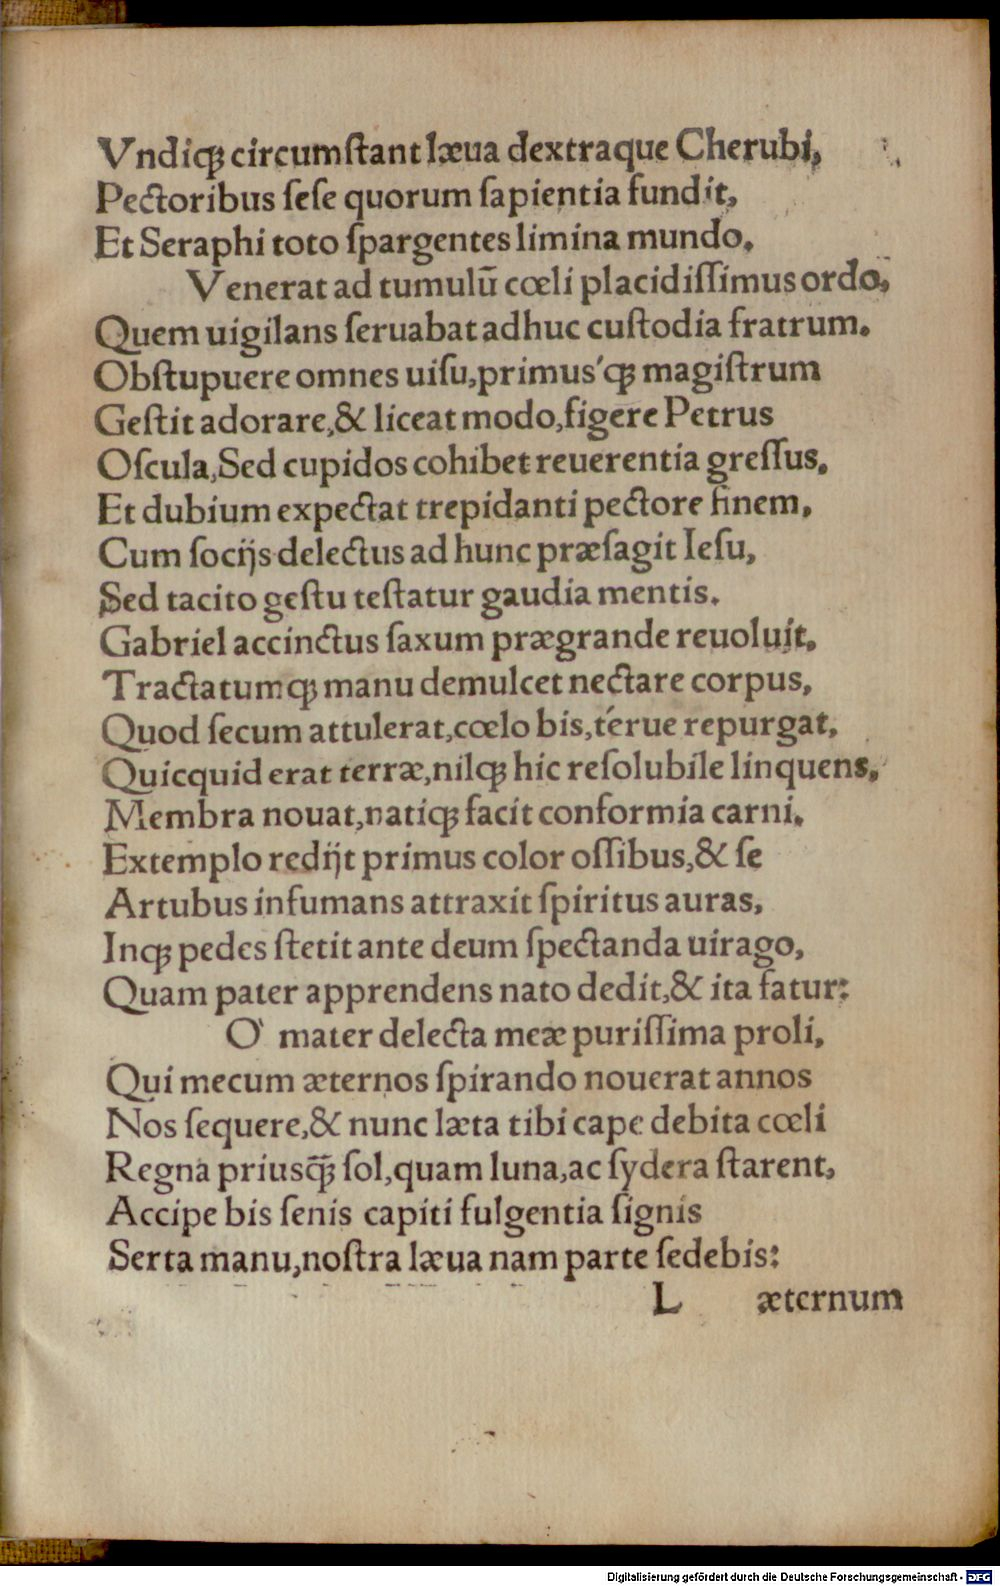 Vndiqꝫ circumſtant læua dextraque Cherubi,
Pectoribus ſeſe quorum ſapientia fundit,
Et Seraphi toto ſpargentes limina mundo.
Venerat ad tumulū cœli placidiſſimus ordo,
Quem uigilans ſeruabat adhuc cuſtodia fratrum.
Obſtupuere omnes uiſu,primus'qꝫ magiſtrum
Geſtit adorare,& liceat modo,figere Petrus
Oſcula,Sed cupidos cohibet reuerentia greſſus.
Et dubium expectat trepidanti pectore finem,
Cum ſocijs delectus ad hunc præſagit Ieſu,
Sed tacito geſtu teſtatur gaudia mentis.
Gabriel accinctus ſaxum prægrande reuoluit,
Tractatumqꝫ manu demulcet nectare corpus,
Quod ſecum attulerat,cœlo bis,térue repurgat,
Quicquid erat terræ,nilqꝫ hic reſolubile linquens,
Membra nouat,natiqꝫ facit conformia carni.
Extemplo redijt primus color oſſibus,& ſe
Artubus infumans attraxit ſpiritus auras,
Inqꝫ pedes ſtetit ante deum ſpectanda uirago,
Quam pater apprendens nato dedit,& ita fatur:
O' mater delecta meæ puriſſima proli,
Qui mecum æternos ſpirando nouerat annos
Nos ſequere,& nunc læta tibi cape debita cœli
Regna priusq̄ꝫ ſol,quam luna,ac ſydera ſtarent,
Accipe bis ſenis capiti fulgentia ſignis
Serta manu,noſtra læua nam parte ſedebis:
L æternum
Digitalisierung gefördert durch die Deutsche Forschungsgemeinschaft - DFG